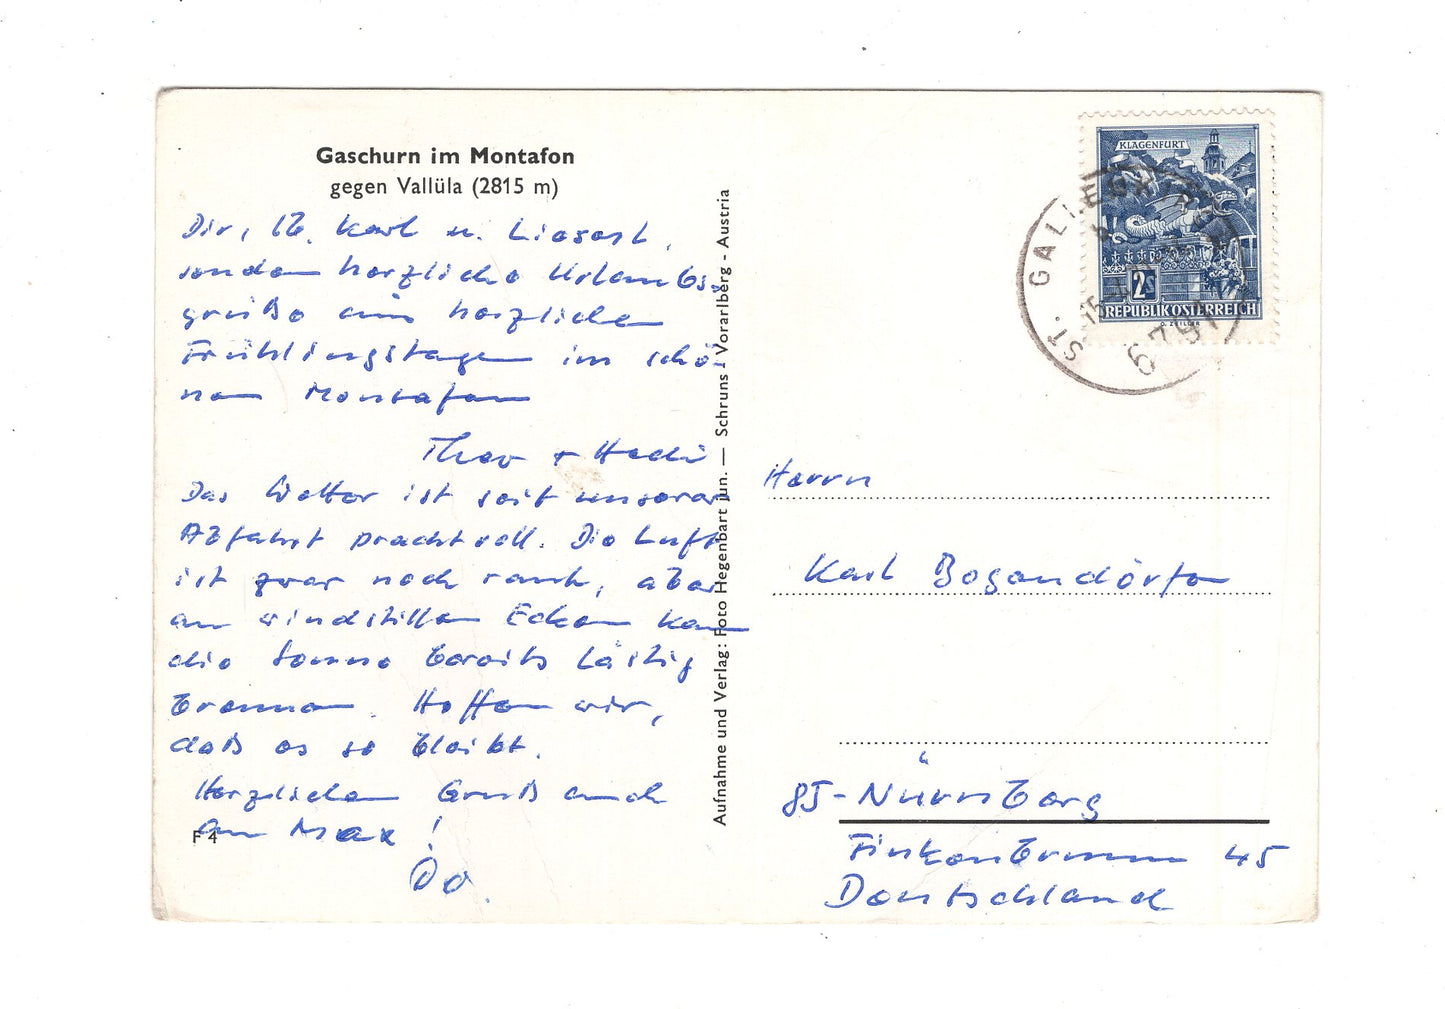 Gaschurn im Montafon
gegen Vallüla (2815 m)
Dir, lb. Karl u. Lieserl,
senden herzliche Urlaubs-
grüße aus herzlichen
Frühlingstagen im schö-
nen Montafon
Theo + Hedi
Das Wetter ist seit unserer
Abfahrt prachtvoll. Die Luft
ist zwar noch rauh, aber
an windstillen Ecken kann
die Sonne bereits lästig
brennen. Hoffen wir,
daß es so bleibt.
Herzlichen Gruß auch
an Max!
F 4
Aufnahme und Verlag: Foto Hegenbart jun. — Schruns - Vorarlberg - Austria
KLAGENFURT
2S
REPUBLIK ÖSTERREICH
ST. GALLENK
6791
Herrn
Karl Bogendörfer
85-Nürnberg
Finkenbrunn 45
Deutschland